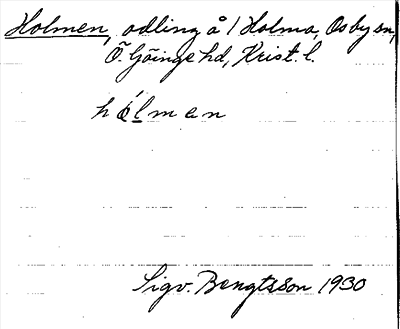 Holmen, odling å 1 Holma, Osby sn,
Ö. Göinge hd, Krist. l.
hólmen
Sigv. Bengtsson 1930